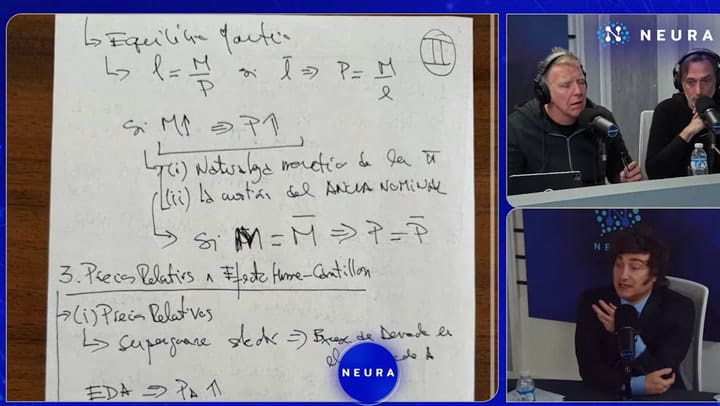 ↳ Equilibrio
(II)
↳ l = M/P si l̄ ⇒ P = M/l
Si M↑ ⇒ P↑
(i) Naturaleza monetaria de la π
(ii) La cuestión del ANCLA NOMINAL
→ Si M = M̄ ⇒ P = P̄
3. Precios Relativos Efecto Hume-Cantillon
→(i) Precios Relativos
↳ shock ⇒ Exceso de Demanda en
A
EDA ⇒ PA ↑
NEURA
NEURA